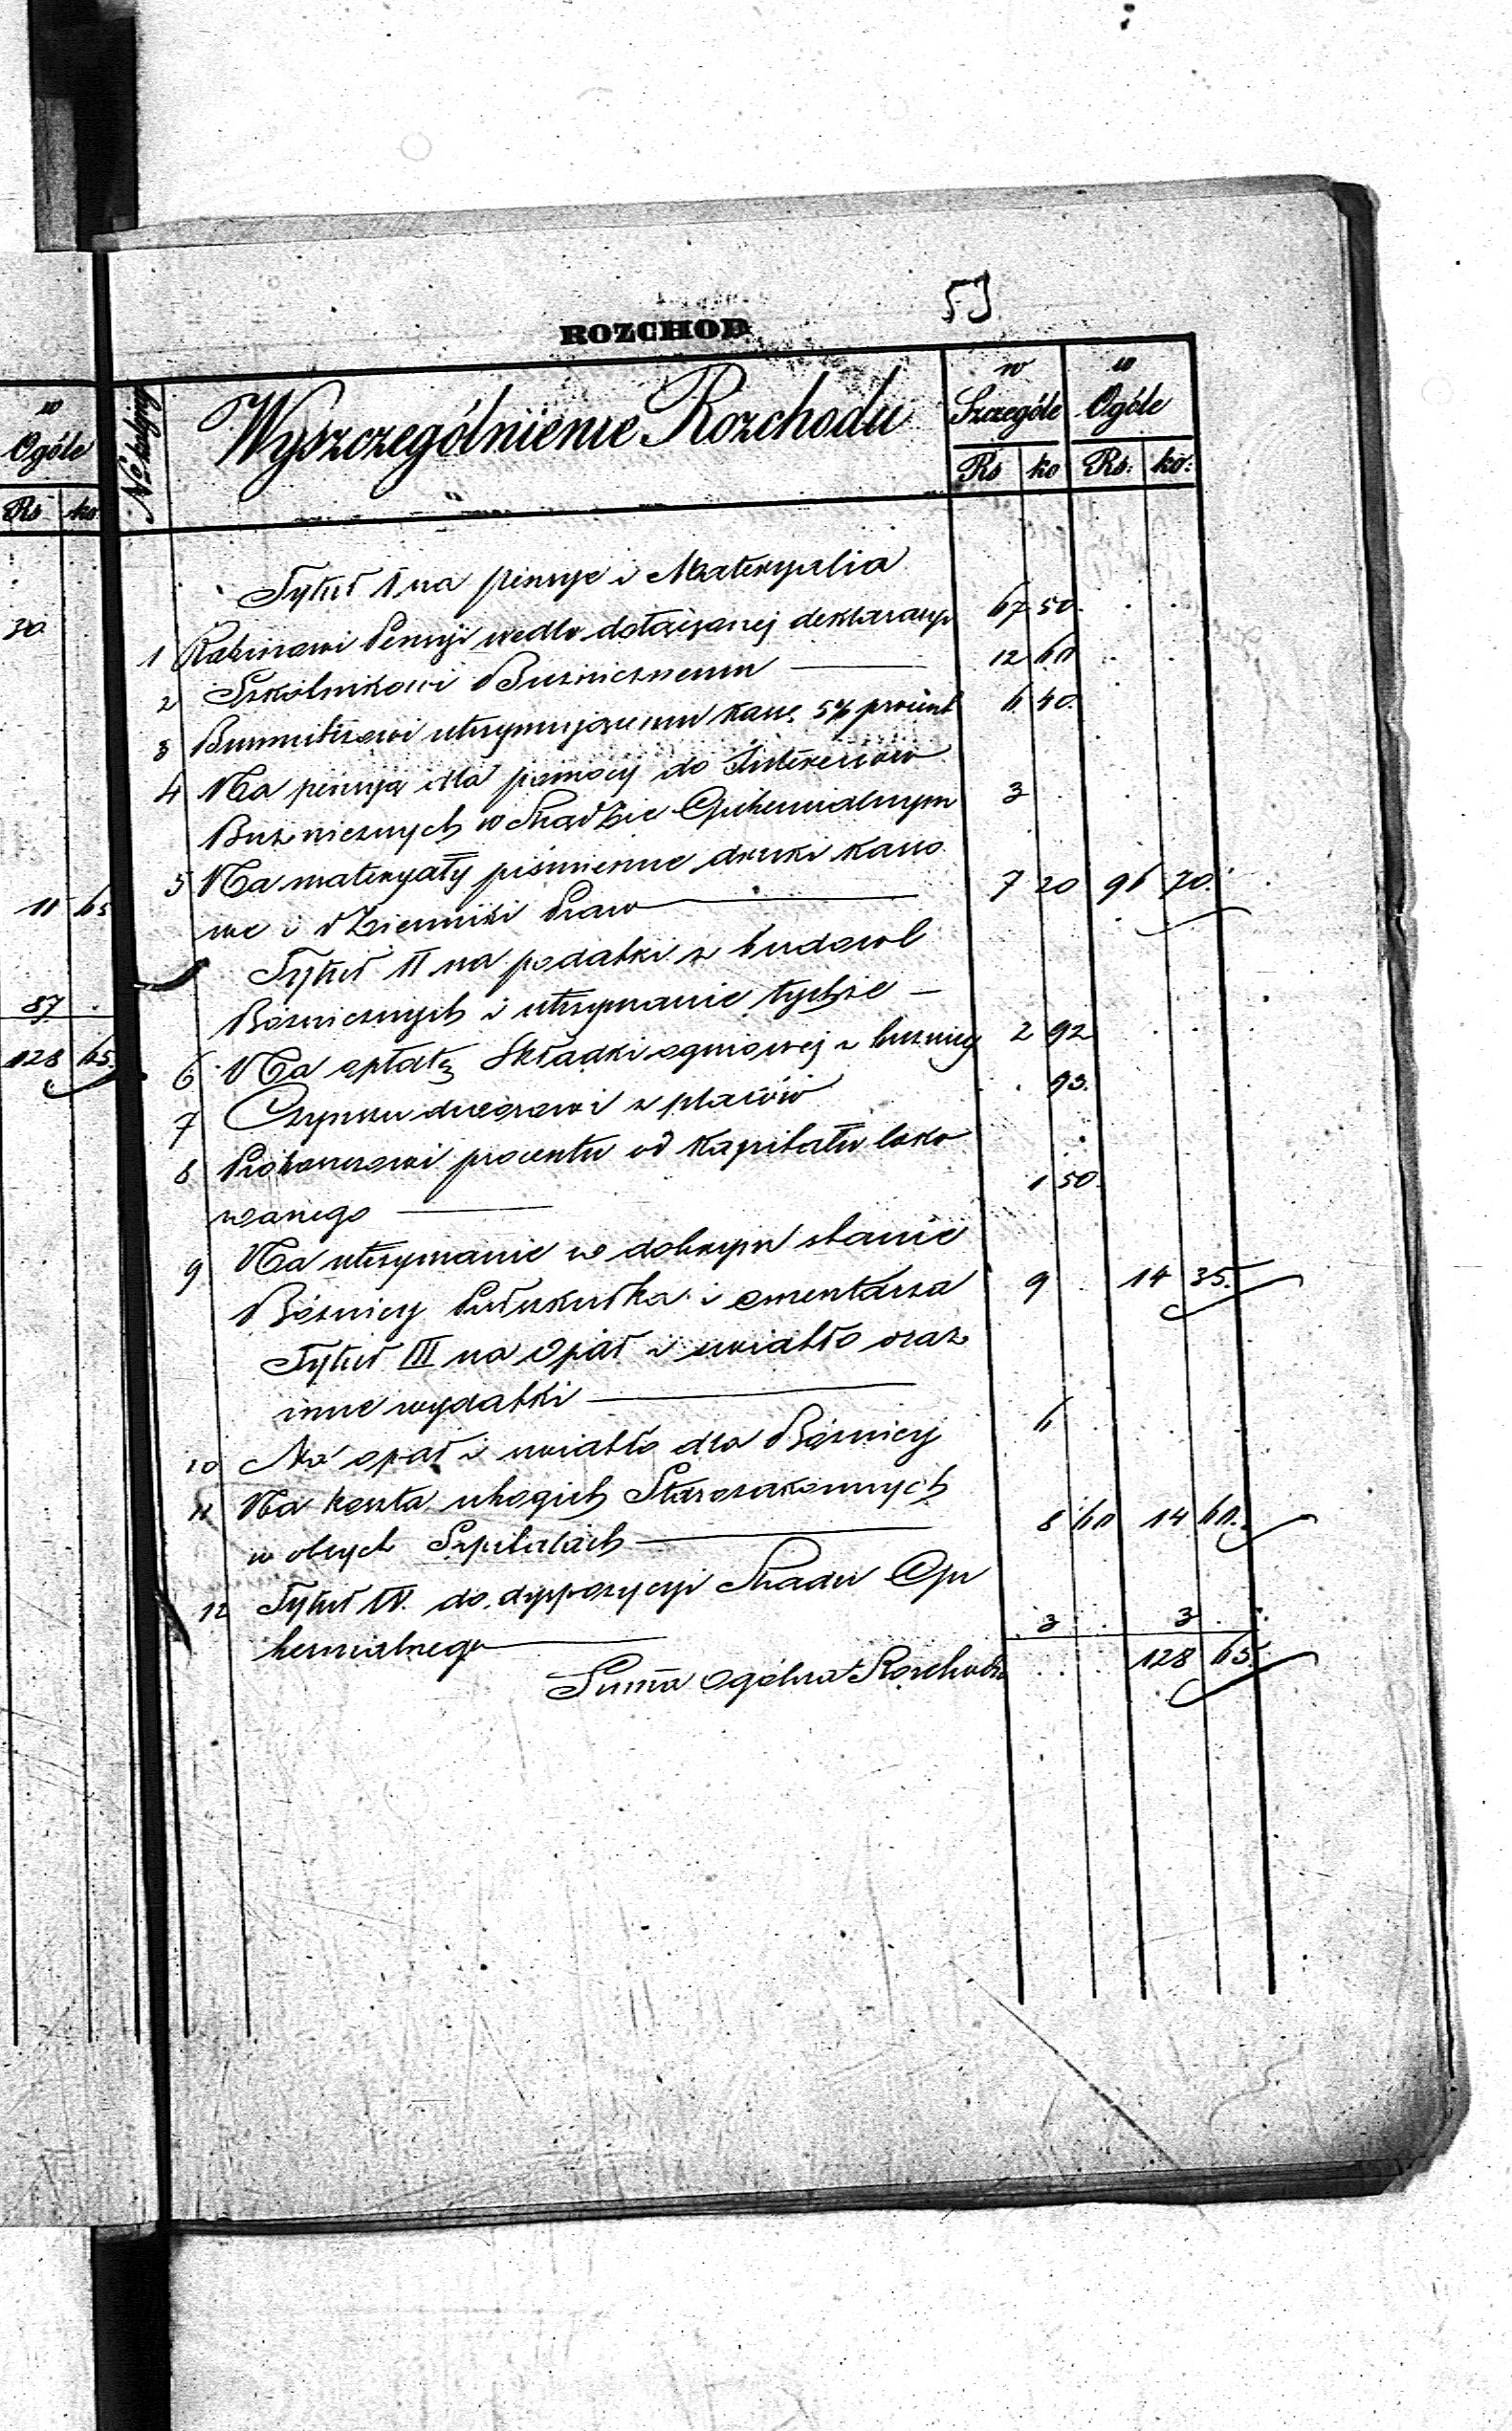 59
ROZCHOD
w Ogóle
Rs ko
30
11 65
87 .
128 65.
№ kolejny
Wyszczególnienie Rozchodu
w Szczególe
w Ogóle
Rs ko Rs: ko:
Tytuł I na pensye i Materyalia
1 Rabinowi Pensyi wedle dołączonej deklaracyi 67 50.
2 Szkolnikowi Bużnicznemu 12 60
3 utrzymującemu kassę 5% procent 6 40.
4 Na pensyą dla pomocy do Interesów
Bużnicznych w Rządzie Gubernialnym 3
5 Na materyały piśmienne druki kasso
we i Dzienniki Praw 7 20 96 70.
Tytuł II na podatki z budowl
Bóżnicznych i utrzymanie tychże —
6 Na opłatę Składki ogniowej z bużnicy 2 92
7 Czynszu dworowi z placów . 93.
8 procentu od Kapitału loko
wanego 1 50.
9 Na utrzymanie w dobrym stanie
Bóżnicy i cmentarza 9 . 14 35.
Tytuł III na Opał i światło oraz
inne wydatki
10 Na opał i światło dla Bóżnicy 6
11 Na koszta ubogich Starozakonnych
w obcych Szpitalach 8 60 14 60.
12 Tytuł IV. do dyspozycyi Rządu Gu
bernialnego 3 . 3 .
Suma ogólna Rozchodu 128 65.